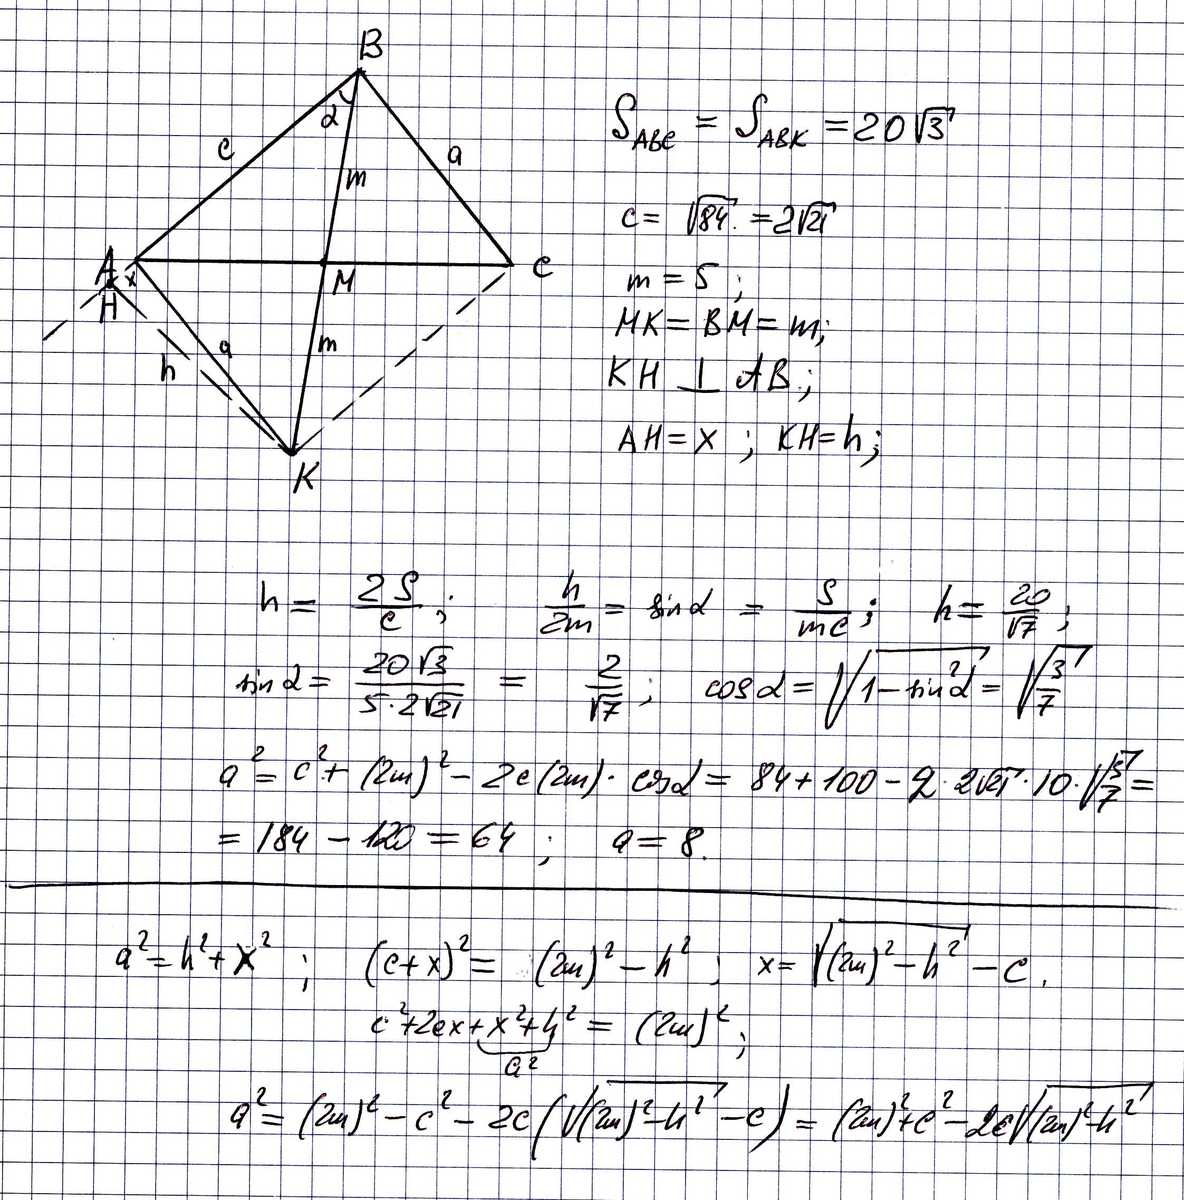 B
α
c
m
a
A
x
M
C
H
h
a
m
K
S_ABC = S_ABK = 20√3
c = √84 = 2√21
m = 5 ;
MK = BM = m;
KH ⊥ AB ;
AH = x ; KH = h ;
h = 2S/c ; h/2m = sin α = S/mc ; h = 20/√7 ;
sin α = 20√3/(5·2√21) = 2/√7 ; cos α = √(1 − sin²α) = √(3/7)
a² = c² + (2m)² − 2c(2m)· cos α = 84 + 100 − 2·2√21·10·√(3/7) =
= 184 − 120 = 64 ; a = 8.
a² = h² + x² ; (c+x)² = (2m)² − h² ; x = √((2m)² − h²) − c.
c² + 2cx + x² + h² = (2m)² ;
a²
a² = (2m)² − c² − 2c(√((2m)² − h²) − c) = (2m)² + c² − 2c√((2m)² − h²)